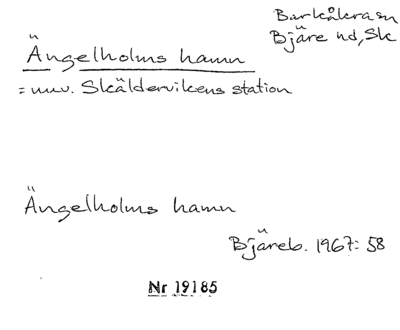 Barkåkra sn
Bjäre hd, Sk
Ängelholms hamn
= nuv. Skäldervikens station
Ängelholms hamn
Bjäreb. 1967: 58
Nr 19185